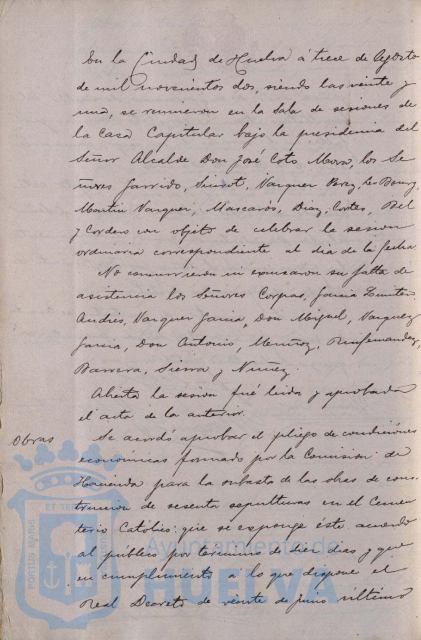 En la Ciudad de Huelva á trece de Agosto
de mil novecientos dos, siendo las veinte y
una, se reunieron en la Sala de sesiones de
la Casa Capitular bajo la presidencia del
Señor Alcalde Don José Coto Mora, los Se
ñores Garrido, Vazquez Perez, de Bourg
Martin Vazquez, Mascarós, Diaz, Cortes, Bel
y Cordero con objeto de celebrar la sesion
ordinaria correspondiente al dia de la fecha
No concurrieron ni excusaron su falta de
asistencia los Señores Corpas, Garcia
Andres, Vazquez Garcia, Don Miguel, Vazquez
Garcia, Don Antonio, Muñoz, Ruifernandez,
Barrera, Sierra y Nuñez.
Abierta la sesion fué leida y aprobada
el acta de la anterior.
Obras
Se acordó aprobar el pliego de condiciones
económicas formado por la Comision de
Hacienda para la subasta de las obras de cons-
truccion de sesenta sepulturas en el Cemen
terio Católico: que se esponga éste acuerdo
al público por termino de diez dias y que
en cumplimiento á lo que dispone el
Real Decreto de veinte de junio último
PORTUS MARIS
ET TERRAE
Ayuntamiento de
HUELVA